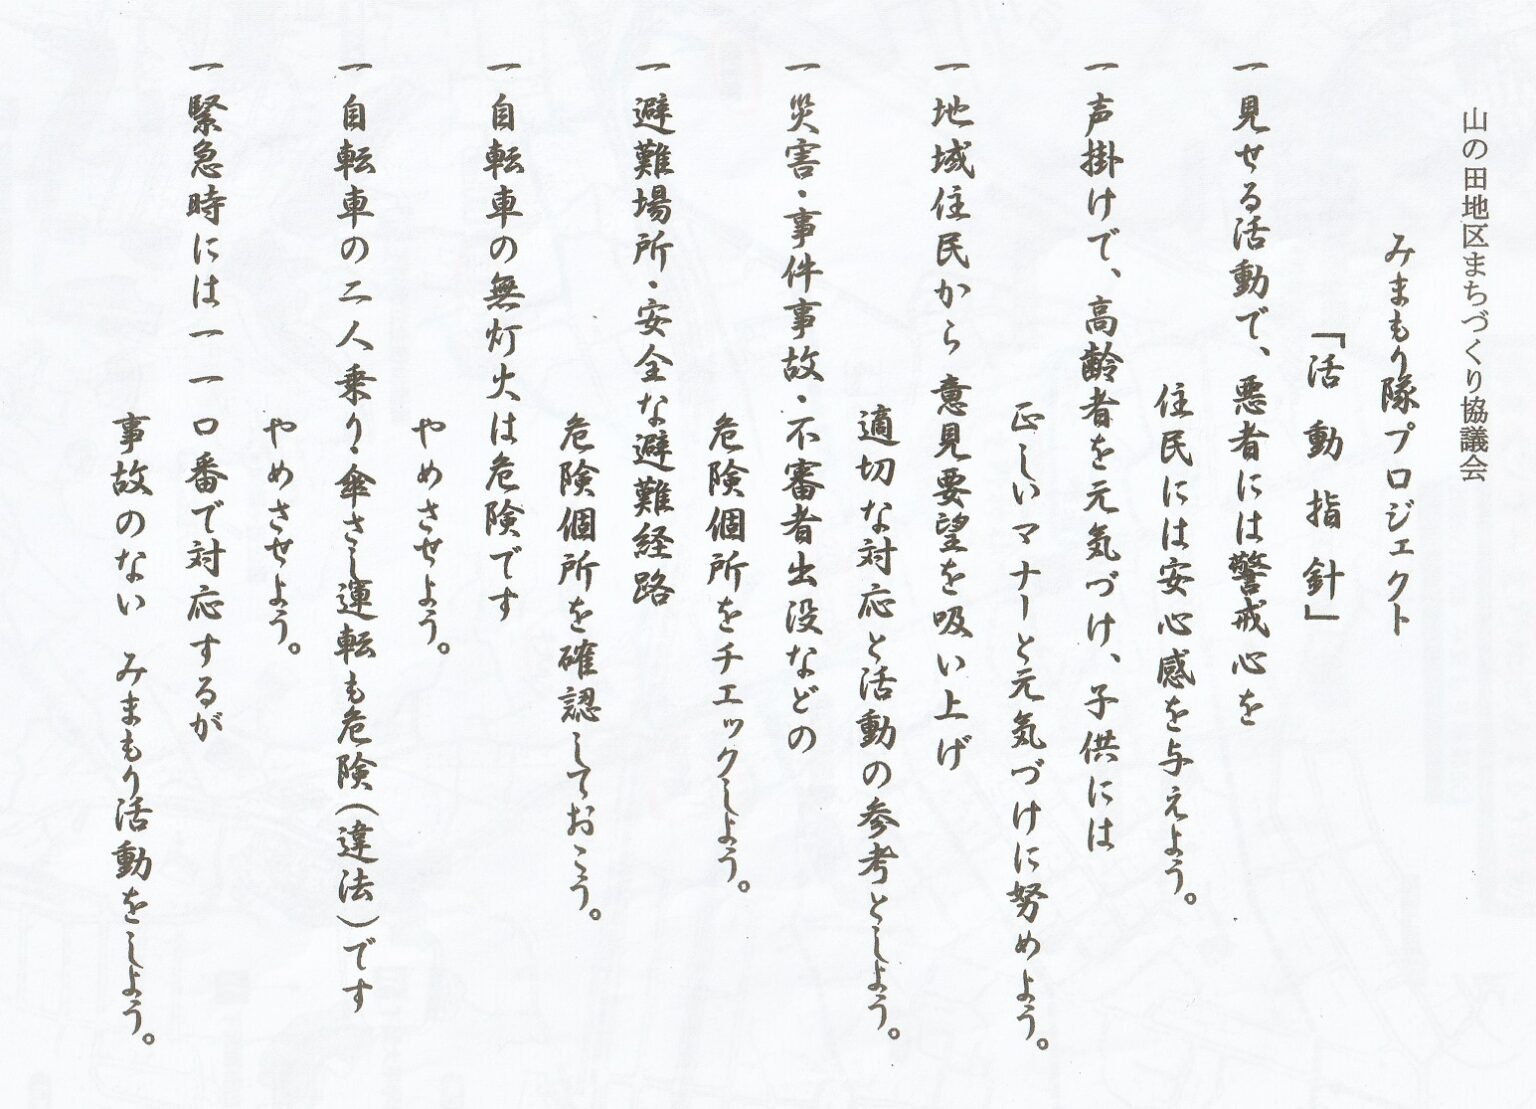 山の田地区まちづくり協議会
みまもり隊プロジェクト
「活動指針」
一 見せる活動で、悪者には警戒心を
住民には安心感を与えよう。
一 声掛けで、高齢者を元気づけ、子供には
正しいマナーと元気づけに努めよう。
一 地域住民から意見要望を吸い上げ
適切な対応と活動の参考としよう。
一 災害・事件事故・不審者出没などの
危険個所をチェックしよう。
一 避難場所・安全な避難経路
危険個所を確認しておこう。
一 自転車の無灯火は危険です
やめさせよう。
一 自転車の二人乗り・傘さし運転も危険(違法)です
やめさせよう。
一 緊急時には一一〇番で対応するが
事故のない みまもり活動をしよう。